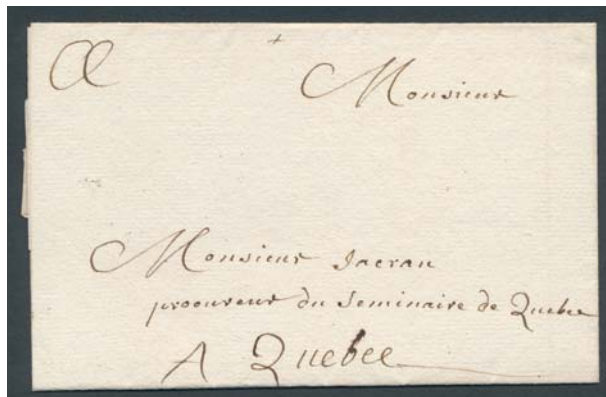 A
Monsieur
Monsieur Jacrau
procureur du Seminaire de Quebec
A Quebec